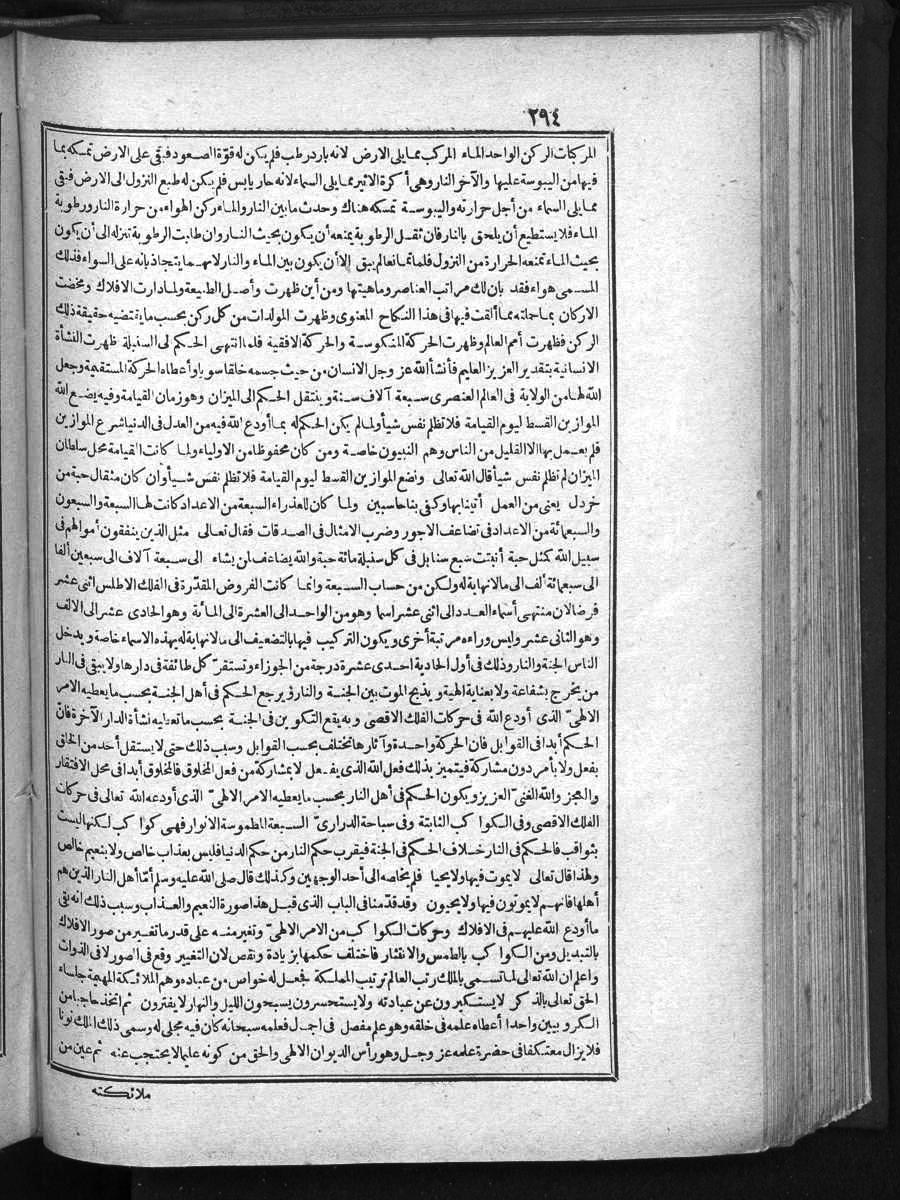 ٢٩٤
المركبات الركن الواحد الماء المركب مما يلى الارض لانه بارد رطب فلم يكن له قوّة الصعود فبقى على الارض تمسكه بما
فيها من اليبوسة عليها والآخر النار وهى أكرة الاثير مما يلى السماء لانه حار يابس فلم يكن له طبع النزول الى الارض فبقى
مما يلى السماء من أجل حرارته واليبوسة تمسكه هناك وحدث ما بين النار والماء ركن الهواء من حرارة النار ورطوبة
الماء فلا يستطيع أن يلحق بالنار فان ثقل الرطوبة يمنعه أن يكون بحيث النار وان طابت الرطوبة تنزله الى أن يكون
بحيث الماء تمنعه الحرارة من النزول فلما تمانعا لم يبق الا أن يكون بين الماء والنار لانهما يتجاذبانه على السواء فذلك
المسمى هواء فقد بان لك مراتب العناصر وماهيتها ومن أين ظهرت وأصل الطبيعة ولما دارت الافلاك ومخضت
الاركان بما حملته مما ألقت فيها فى هذا النكاح المعنوى وظهرت المولدات من كل ركن بحسب ما يقتضيه حقيقة ذلك
الركن فظهرت أمم العالم وظهرت الحركة المنكوسة والحركة الافقية فلما انتهى الحكم الى السنبلة ظهرت النشأة
الانسانية بتقدير العزيز العليم فأنشأ الله عز وجل الانسان من حيث جسمه خلقا سويا وأعطاه الحركة المستقيمة وجعل
الله لها من الولاية فى العالم العنصرى سبعة آلاف سنة وينتقل الحكم الى الميزان وهو زمان القيامة وفيه يضع الله
الموازين القسط ليوم القيامة فلا تظلم نفس شيأ ولما لم يكن الحكم له بما أودع الله فيه من العدل فى الدنيا شرع الموازين
فلم يعمل بها الا القليل من الناس وهم النبيون خاصة ومن كان محفوظا من الاولياء ولما كانت القيامة محل سلطان
الميزان لم تظلم نفس شيأ قال الله تعالى ونضع الموازين القسط ليوم القيامة فلا تظلم نفس شيأ وان كان مثقال حبة من
خردل يعنى من العمل أتينا بها وكفى بنا حاسبين ولما كان للعذراء السبعة من الاعداد كانت لها السبعة والسبعون
والسبعمائة من الاعداد فى تضاعف الاجور وضرب الامثال فى الصدقات فقال تعالى مثل الذين ينفقون أموالهم فى
سبيل الله كمثل حبة أنبتت سبع سنابل فى كل سنبلة مائة حبة والله يضاعف لمن يشاء الى سبعة آلاف الى سبعين ألفا
الى سبعمائة ألف الى ما لا نهاية له ولكن من حساب السبعة وانما كانت الفروض المقدّرة فى الفلك الاطلس اثنى عشر
فرضا لان منتهى أسماء العدد الى اثنى عشر اسما وهو من الواحد الى العشرة الى المائة وهو الحادى عشر الى الالف
وهو الثانى عشر وليس وراءه مرتبة أخرى ويكون التركيب فيها بالتضعيف الى ما لا نهاية له بهذه الاسماء خاصة ويدخل
الناس الجنة والنار وذلك فى أول الحادية احدى عشرة درجة من الجوزاء وتستقرّ كل طائفة فى دارها ولا يبقى فى النار
من يخرج بشفاعة ولا بعناية الهية ويذبح الموت بين الجنة والنار ويرجع الحكم فى أهل الجنة بحسب ما يعطيه الامر
الالهىّ الذى أودع الله فى حركات الفلك الاقصى وبه يقع التكوين فى الجنة بحسب ما تعطيه نشأة الدار الآخرة فانّ
الحكم أبدا فى القوابل فان الحركة واحدة وآثارها تختلف بحسب القوابل وسبب ذلك حتى لا يستقل أحد من الخلق
بفعل ولا بأمر دون مشاركة فيتميز بذلك فعل الله الذى يفعل لا بمشاركة من فعل المخلوق فالمخلوق أبدا فى محل الافتقار
والعجز والله الغنىّ العزيز ويكون الحكم فى أهل النار بحسب ما يعطيه الامر الالهىّ الذى أودعه الله تعالى فى حركات
الفلك الاقصى وفى الكواكب الثابتة وفى سباحة الدرارىّ السبعة المطموسة الانوار فهى كواكب لكنها ليست
بثواقب فالحكم فى النار خلاف الحكم فى الجنة فيقرب حكم النار من حكم الدنيا فليس بعذاب خالص ولا بنعيم خالص
ولهذا قال تعالى لا يموت فيها ولا يحيا فلم يخلصه الى أحد الوجهين وكذلك قال صلى الله عليه وسلم أمّا أهل النار الذين هم
أهلها فانهم لا يموتون فيها ولا يحيون وقد قدّمنا فى الباب الذى قبل هذا صورة النعيم والعذاب وسبب ذلك انه بقى
ما أودع الله عليهم فى الافلاك وحركات الكواكب من الامر الالهىّ وتغير منه على قدر ما تغير من صور الافلاك
بالتبديل ومن الكواكب بالطمس والانتثار فاختلف حكمها بزيادة ونقص لان التغيير وقع فى الصور لا فى الذوات
واعلم ان الله تعالى لما تسمى بالملك رتب العالم ترتيب المملكة فجعل له خواص من عباده وهم الملائكة المهيمة جلساء
الحق تعالى بالذكر لا يستكبرون عن عبادته ولا يستحسرون يسبحون الليل والنهار لا يفترون ثم اتخذ حاجبا من
الكروبيين واحدا أعطاه علمه فى خلقه وهو علم مفصل فى اجمال فعلمه سبحانه كان فيه مجلى له وسمى ذلك الملك نونا
فلا يزال معتكفا فى حضرة علمه عز وجل وهو رأس الديوان الالهى والحق من كونه عليما لا يحتجب عنه ثم عين من
ملائكته